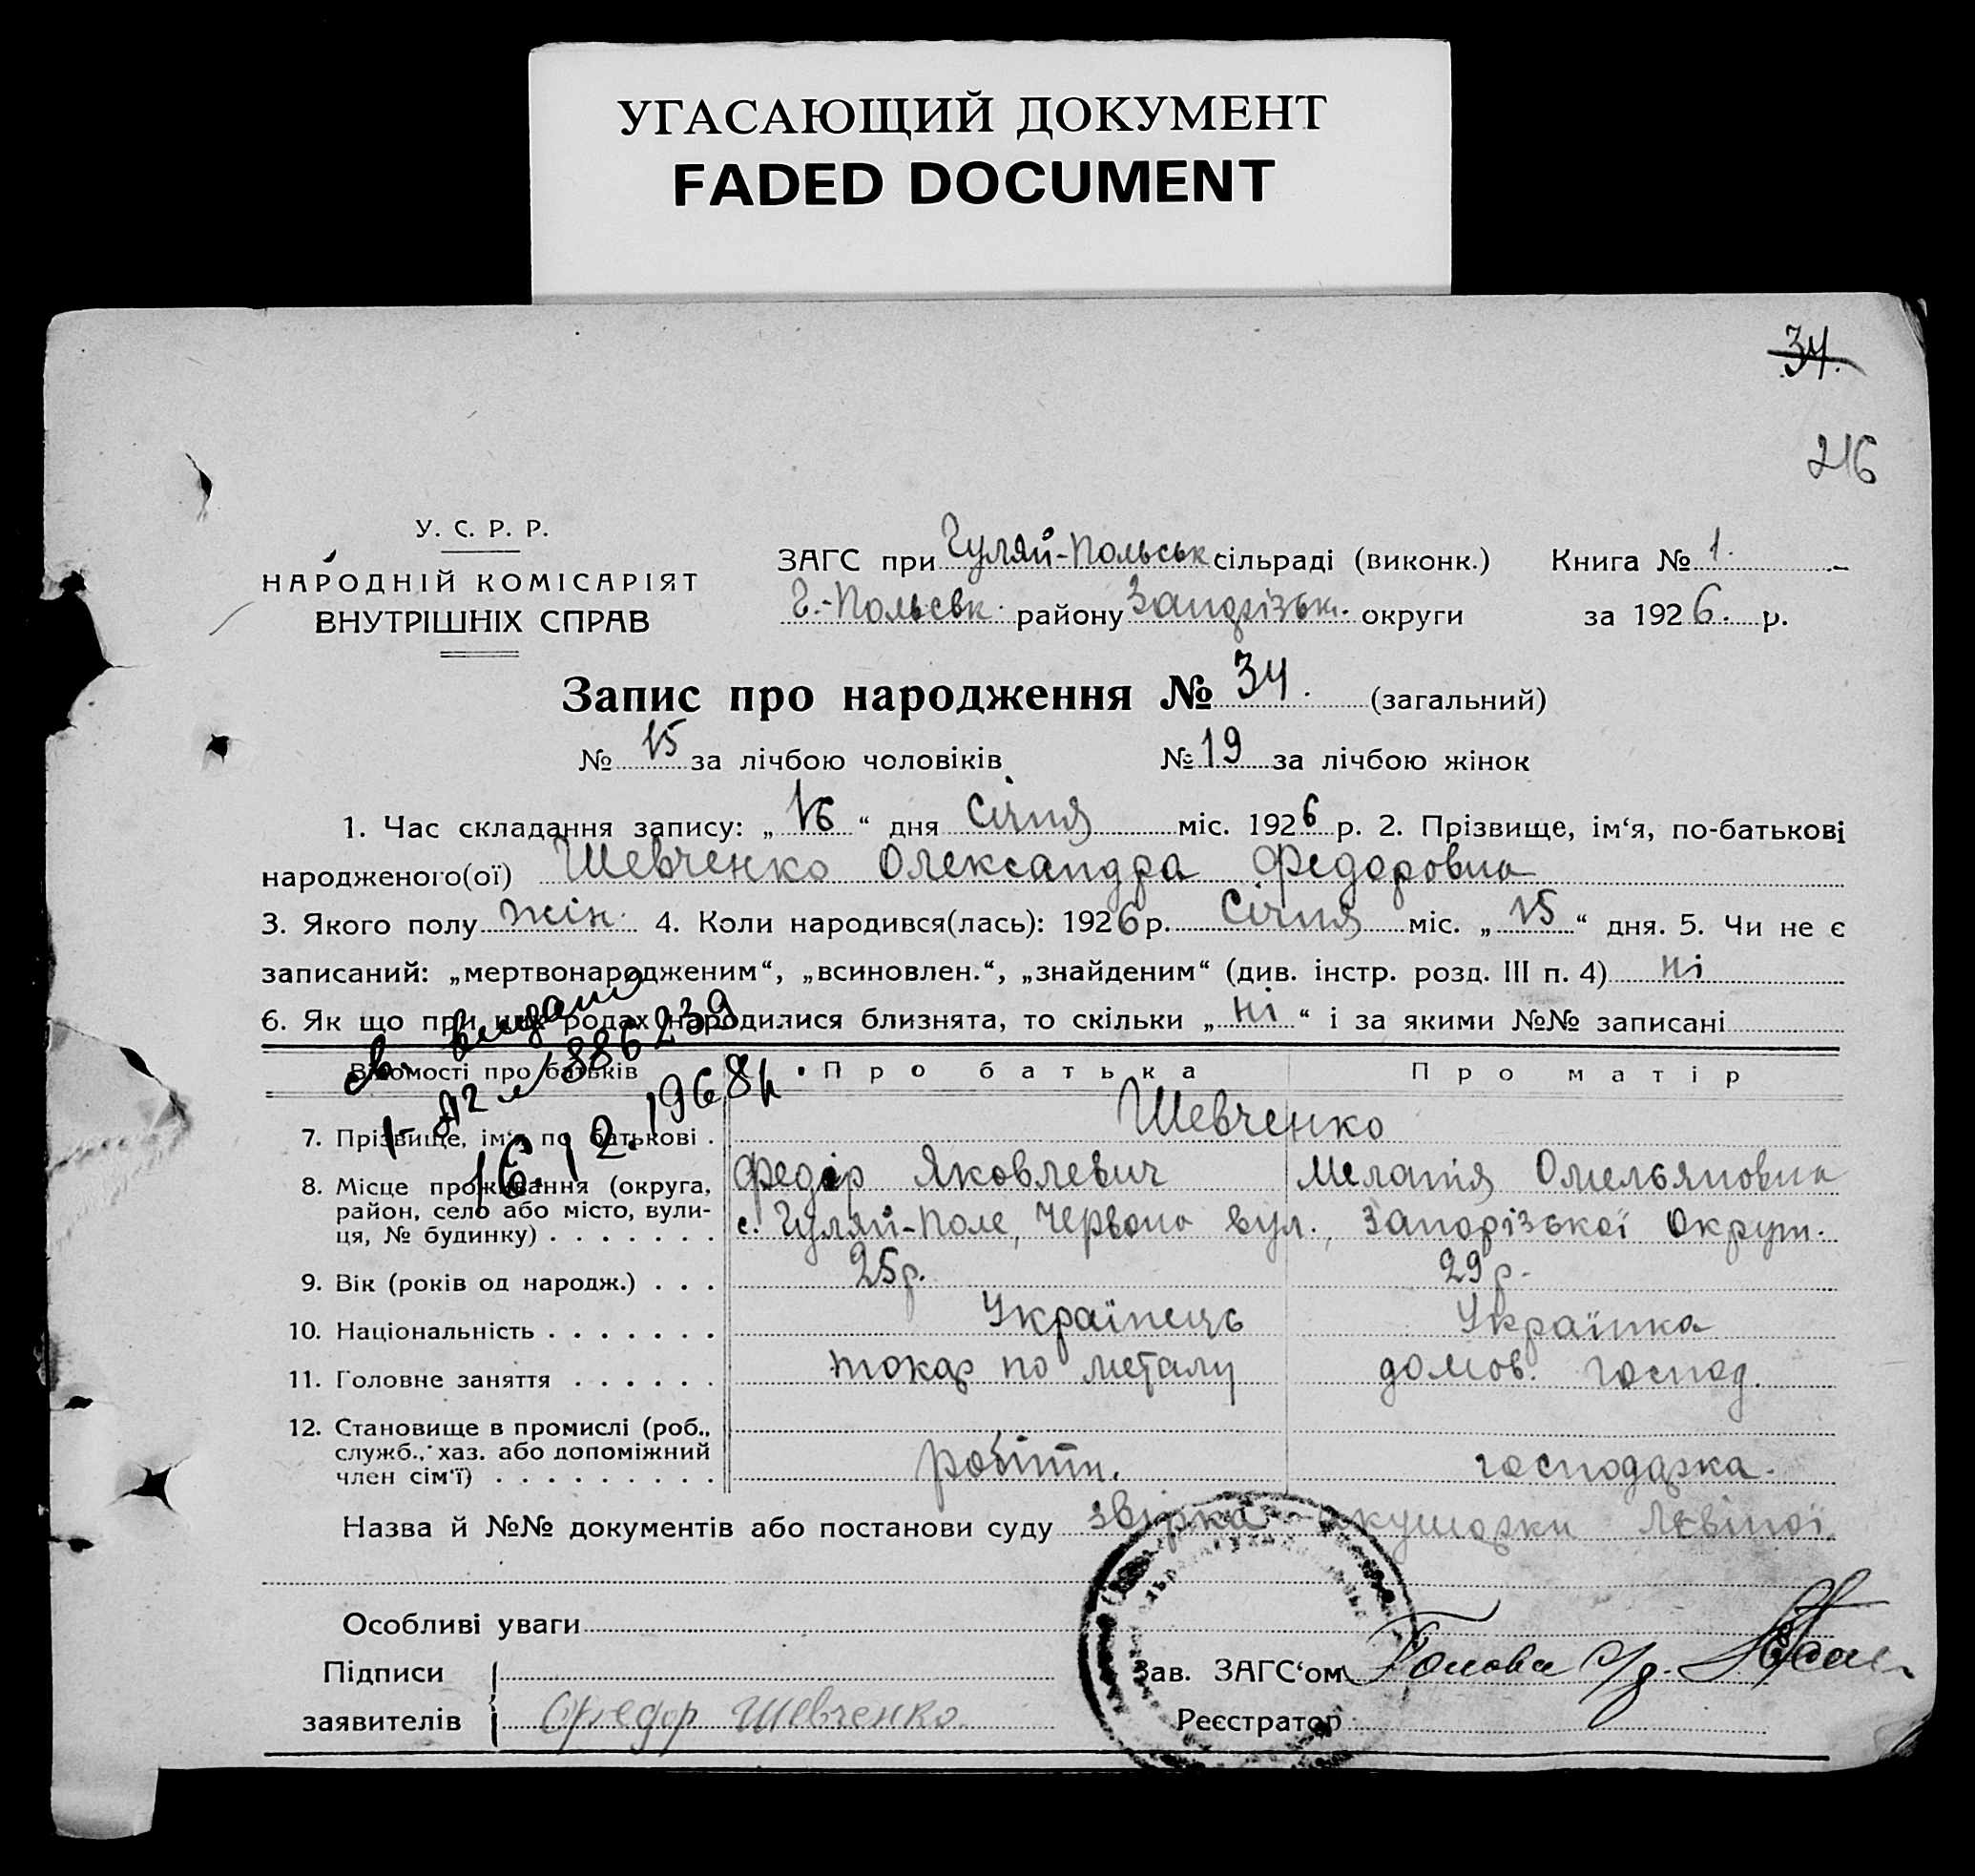 УГАСАЮЩИЙ ДОКУМЕНТ
FADED DOCUMENT
34.
216
У. С. Р. Р.
НАРОДНІЙ КОМІСАРІЯТ
ВНУТРІШНІХ СПРАВ
ЗАГС при Гуляй-Польськ сільраді (виконк.) Книга № 1.
Г.-Польськ. району Запорізьк. округи за 1926. р.
Запис про народження № 34. (загальний)
№ 15 за лічбою чоловіків № 19 за лічбою жінок
1. Час складання запису: „16“ дня Січня міс. 1926 р. 2. Прізвище, ім‘я, по-батькові
народженого(ої) Шевченко Олександра Федоровна
3. Якого полу жін. 4. Коли народився(лась): 1926 р. Січня міс. „15“ дня. 5. Чи не є
записаний: „мертвонародженим“, „всиновлен.“, „знайденим“ (див. інстр. розд. III п. 4) ні
6. Як що при цих родах народилися близнята, то скільки „ні“ і за якими №№ записані
св. видано
1-АП № 886239
16.12.1968р.
Відомості про батьків Про батька Про матір
7. Прізвище, ім‘я, по батькові . Шевченко
Федір Яковлевич Меланія Омельяновна
8. Місце проживання (округа,
район, село або місто, вули-
ця, № будинку) . . . . . . . с. Гуляй-Поле, Червона вул., Запорізької Округи.
9. Вік (років од народж.) . . . 25р. 29р.
10. Національність . . . . . . . Українець Українка
11. Головне заняття . . . . . . токар по металу домов. господ.
12. Становище в промислі (роб.,
служб., хаз. або допоміжний
член сім‘ї) . . . . . . . . . робітн. господарка.
Назва й №№ документів або постанови суду звірка акушорки Левіної
Особливі уваги
Підписи Зав. ЗАГС‘ом Голова с/р.
заявителів Федор Шевченко Реєстратор